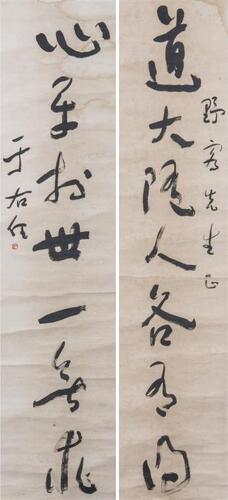 道大随人各有得
野鹤先生正
心平于世一无求
于右任